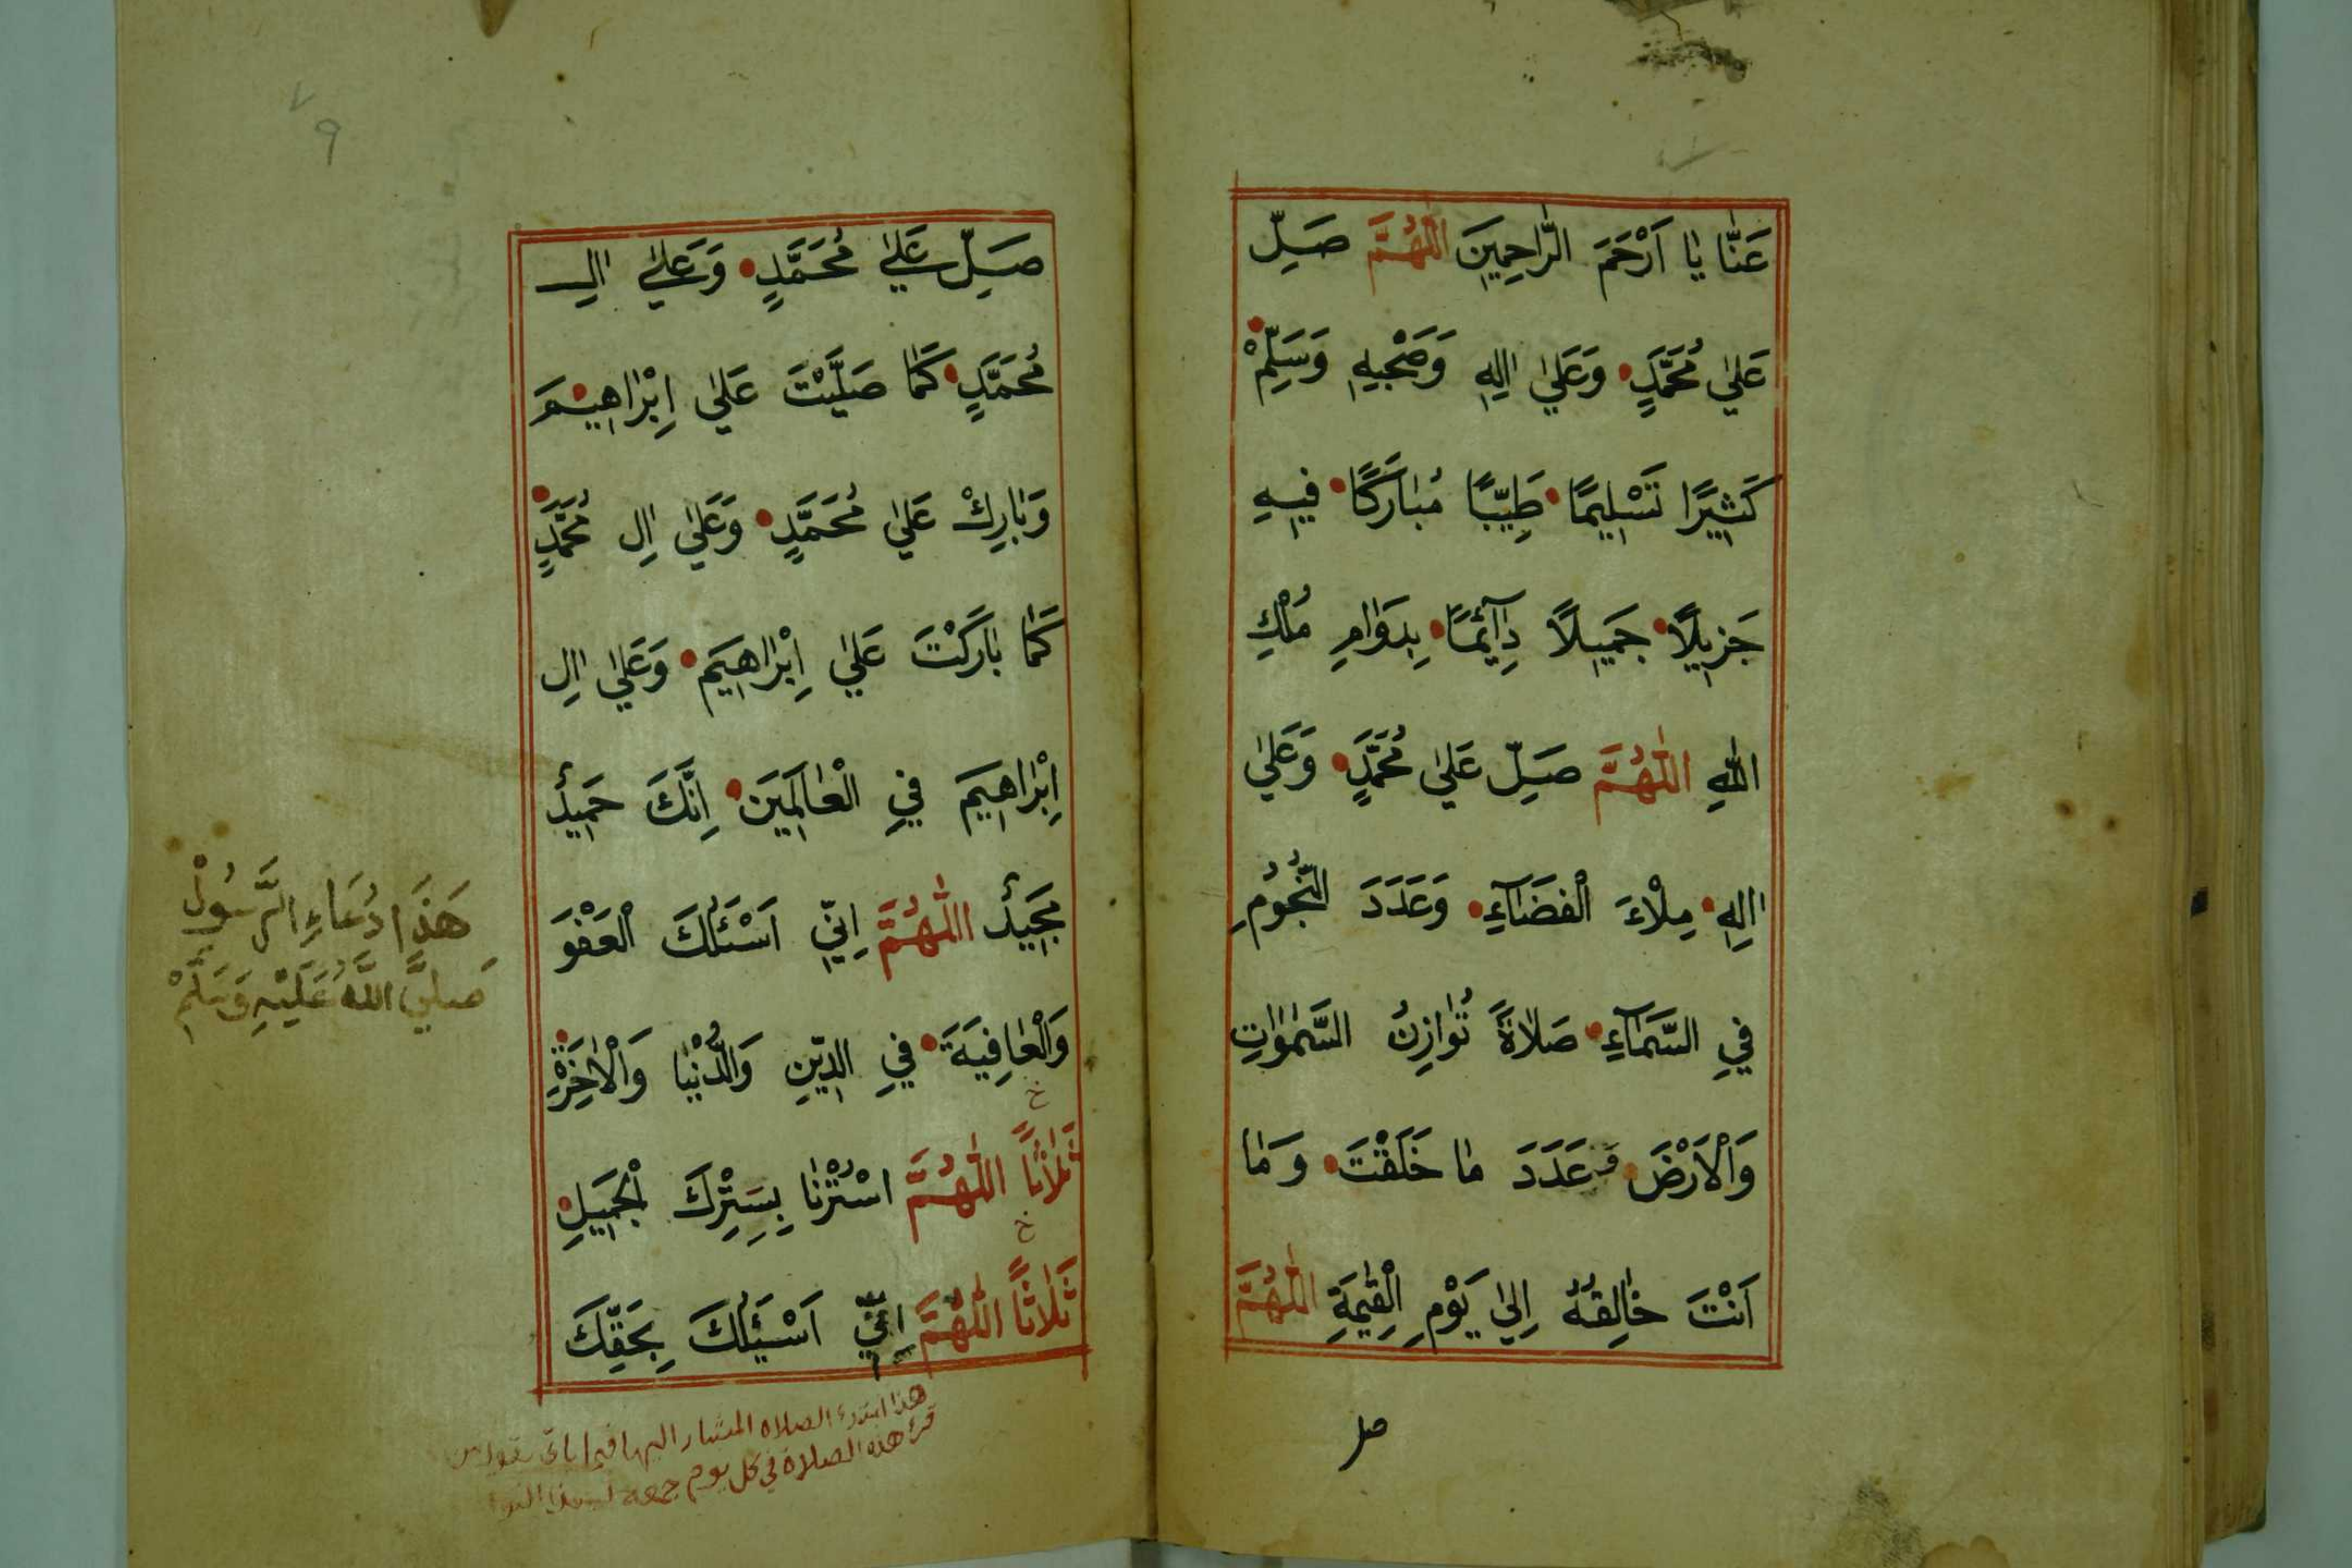 عَنَّا يَا اَرْحَمَ الرَّاحِمِينَ اَللّٰهُمَّ صَلِّ
عَلٰي مُحَمَّدٍ وَعَلٰي اٰلِهِ وَصَحْبِهِ وَسَلِّمْ
كَثِيرًا تَسْلِيمًا طَيِّبًا مُبَارَكًا فِيهِ
جَزِيلًا جَمِيلًا دَآئِمًا بِدَوَامِ مُلْكِ
اللّٰهِ اَللّٰهُمَّ صَلِّ عَلٰي مُحَمَّدٍ وَعَلٰي
اٰلِهِ مِلْاءَ الْفَضَآءِ وَعَدَدَ النُّجُومِ
فِي السَّمَآءِ صَلَاةً تُوَازِنُ السَّمٰوَاتِ
وَالْاَرْضَ وَعَدَدَ مَا خَلَقْتَ وَمَا
اَنْتَ خَالِقُهُ اِلٰي يَوْمِ الْقِيٰمَةِ اَللّٰهُمَّ
صل
٧٩
صَلِّ عَلٰي مُحَمَّدٍ وَعَلٰي اٰلِ
مُحَمَّدٍ كَمَا صَلَّيْتَ عَلٰي اِبْرَاهِيمَ
وَبَارِكْ عَلٰي مُحَمَّدٍ وَعَلٰي اٰلِ مُحَمَّدٍ
كَمَا بَارَكْتَ عَلٰي اِبْرَاهِيمَ وَعَلٰي اٰلِ
اِبْرَاهِيمَ فِي الْعَالَمِينَ اِنَّكَ حَمِيدٌ
مَجِيدٌ اَللّٰهُمَّ اِنِّي اَسْئَلُكَ الْعَفْوَ
وَالْعَافِيَةَ فِي الدِّينِ وَالدُّنْيَا وَالْاٰخِرَةِ
خ
ثَلَاثًا اَللّٰهُمَّ اسْتُرْنَا بِسِتْرِكَ الْجَمِيلِ
خ
ثَلَاثًا اَللّٰهُمَّ اِنِّي اَسْئَلُكَ بِحَقِّكَ
هَذَا دُعَاءِ الرَّسُولْ
صَلَّي اللَّهُ عَلَيْهِ وَسَلَّمْ
هذا ابتدء الصلاة المشار اليها فيما ياتي بقوله من
قرأ هذه الصلاة في كل يوم جمعة